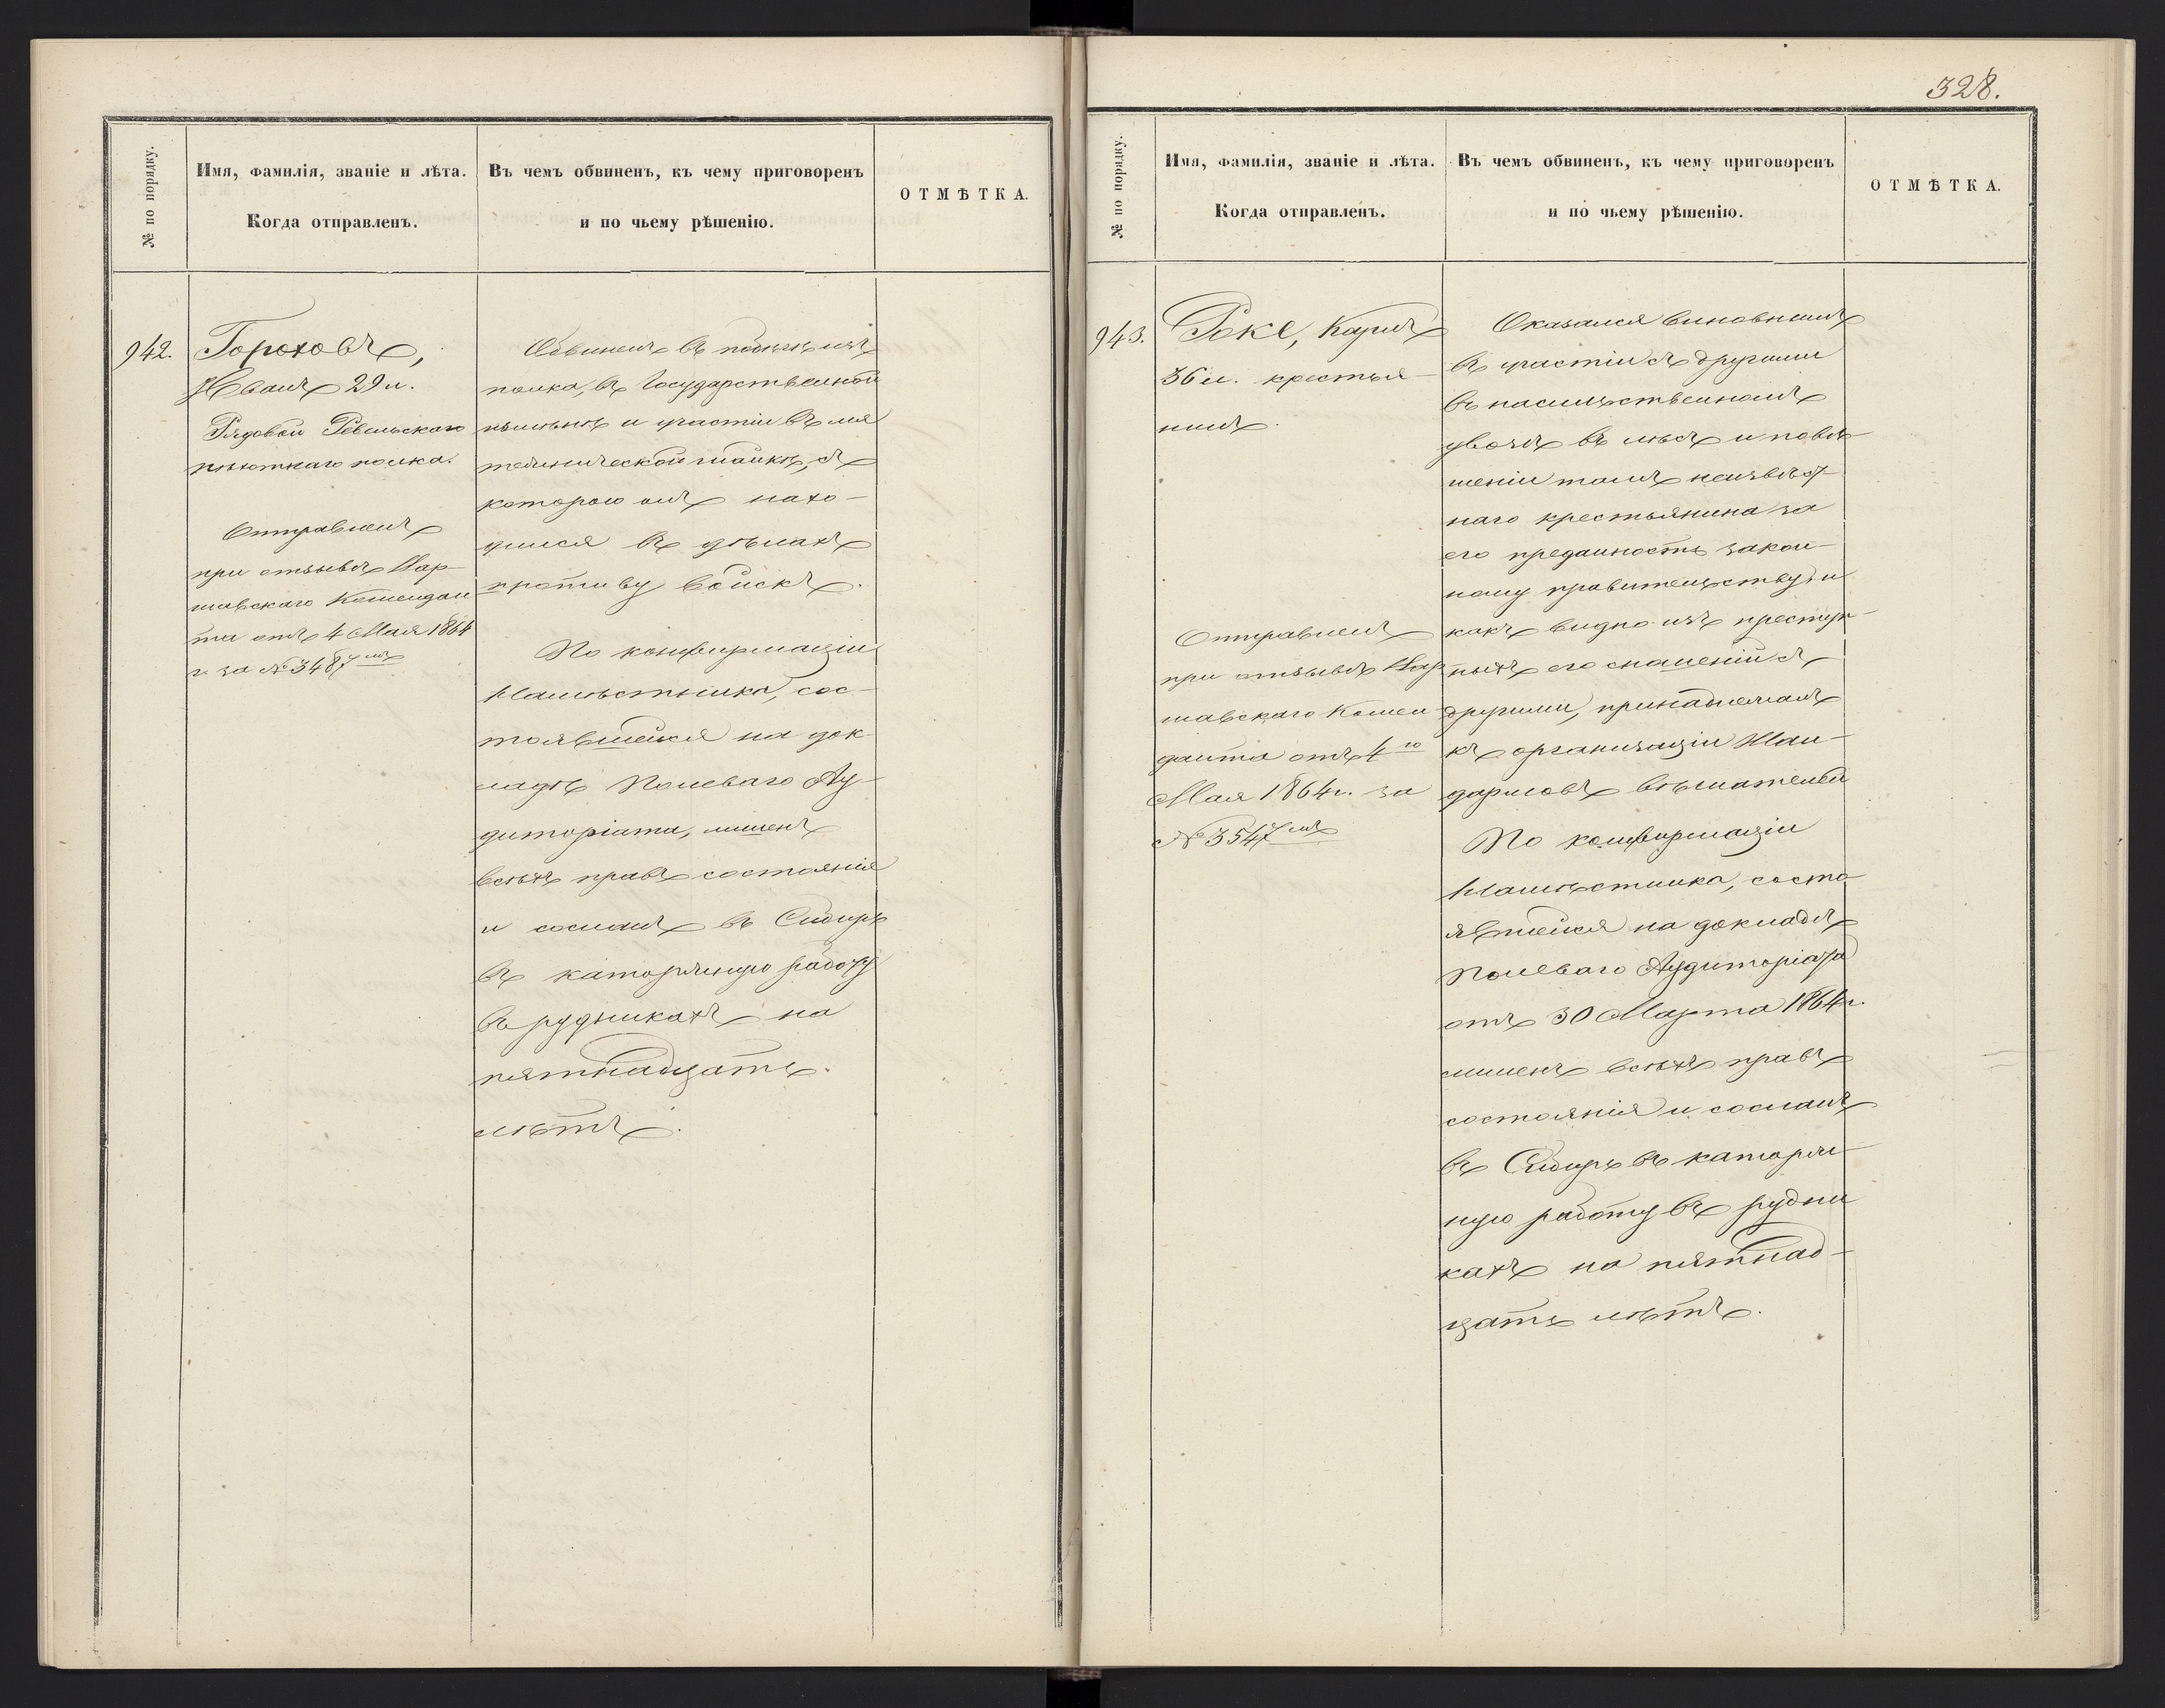 № по порядку.
Имя, фамилія, званіе и лѣта.
Когда отправленъ.
Въ чемъ обвиненъ, къ чему приговоренъ
и по чьему рѣшенію.
ОТМѢТКА.
942.
Гороховъ,
Иванъ 29 л.
Рядовой Ревельскаго
пѣхотнаго полка.
Отправленъ
при отзывѣ Вар-
шавскаго Комендан
та отъ 4 Мая 1864
г. за № 3487мъ
Обвиненъ въ побѣгѣ изъ
полка, въ Государственной
измѣнѣ и участіи въ мя
тежнической шайкѣ, съ
которою онъ нахо-
дился въ дѣлахъ
противу войскъ.
По конфирмаціи
Намѣстника, сос-
тоявшейся на док-
ладѣ Полеваго Ау-
диторіата, лишенъ
всѣхъ правъ состоянія
и сосланъ въ Сибирь
въ каторжную работу
въ рудникахъ на
пятнадцать
лѣтъ.
328.
№ по порядку.
Имя, фамилія, званіе и лѣта.
Когда отправленъ.
Въ чемъ обвиненъ, къ чему приговоренъ
и по чьему рѣшенію.
ОТМѢТКА.
943.
Роке, Карлъ
36 л. крестья-
нинъ.
Отправленъ
при отзывѣ Вар
шавскаго Комен
данта отъ 4го
Мая 1864 г. за
№ 3547мъ
Оказался виновнымъ
въ участіи съ другими
въ насильственномъ
увозѣ въ лѣсъ и повѣ-
шеніи тамъ неизвѣст-
наго крестьянина за
его преданность закон-
ному правительству, и
какъ видно изъ преступ-
ныхъ его сношеній съ
другими, принадлежалъ
къ организаціи Жан-
дармовъ вѣшателей
По конфирмаціи
Намѣстника, состо
явшейся на докладѣ
Полеваго Аудиторіата
отъ 30 Марта 1864 г.
лишенъ всѣхъ правъ
состоянія и сосланъ
въ Сибирь въ каторж-
ную работу въ рудни
кахъ на пятнад-
цать лѣтъ.